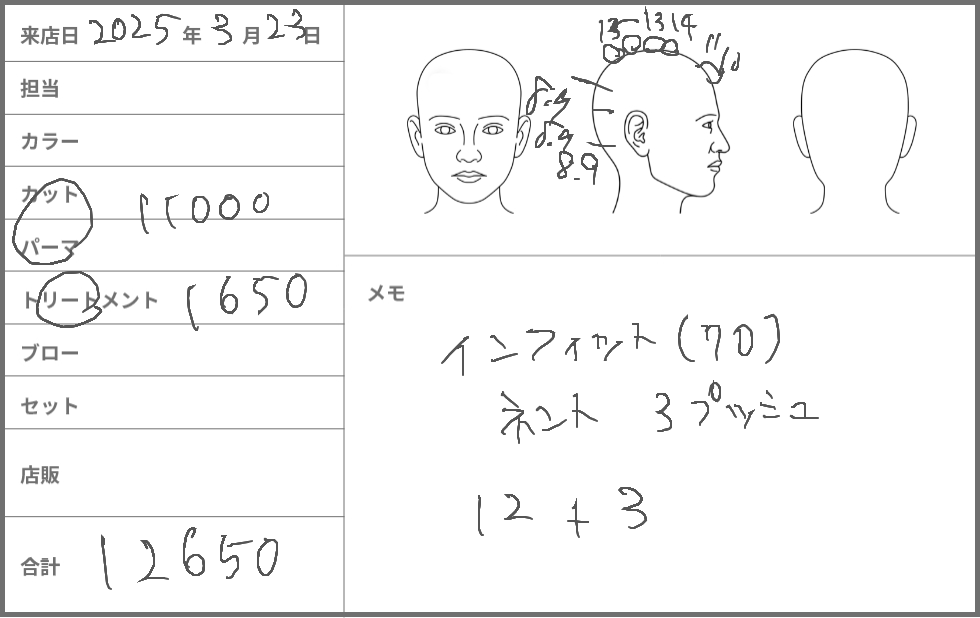 来店日 2025年3月23日
担当
カラー
カット 11000
パーマ
トリートメント 1650
ブロー
セット
店販
合計 12650
15 1314
11 10
8.9
8.9
メモ
インフィット(70)
ネント 3プッシュ
12+3